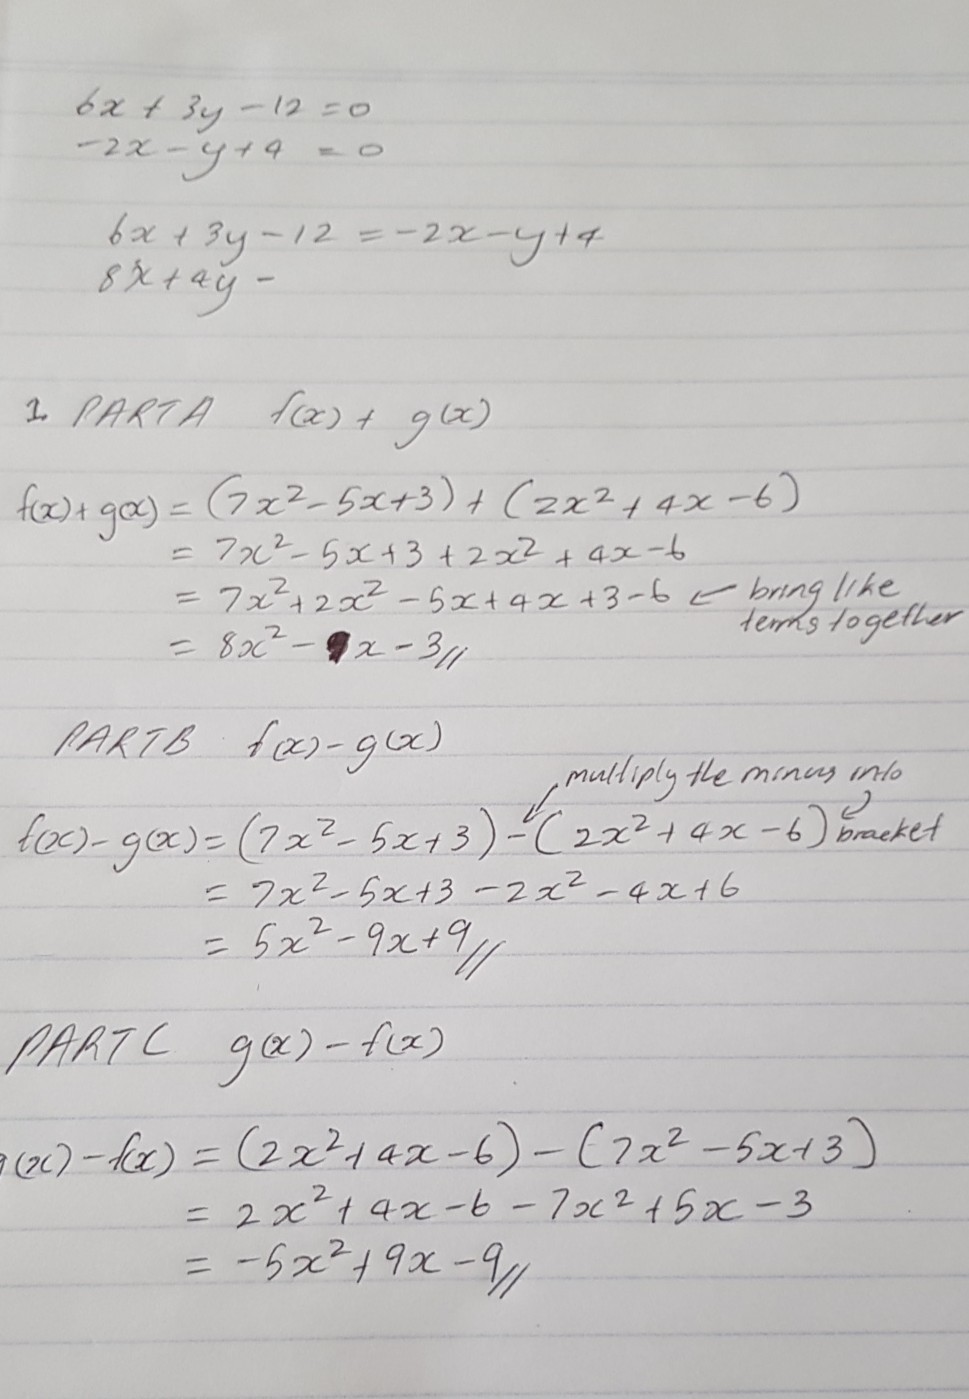 6x + 3y - 12 = 0
-2x - y + 4 = 0
6x + 3y - 12 = -2x - y + 4
8x + 4y -
1. PART A f(x) + g(x)
f(x) + g(x) = (7x² - 5x + 3) + (2x² + 4x - 6)
= 7x² - 5x + 3 + 2x² + 4x - 6
= 7x² + 2x² - 5x + 4x + 3 - 6 ← bring like
terms together
= 8x² - x - 3//
PART B f(x) - g(x)
multiply the minus into
f(x) - g(x) = (7x² - 5x + 3) - (2x² + 4x - 6) bracket
= 7x² - 5x + 3 - 2x² - 4x + 6
= 5x² - 9x + 9//
PART C g(x) - f(x)
g(x) - f(x) = (2x² + 4x - 6) - (7x² - 5x + 3)
= 2x² + 4x - 6 - 7x² + 5x - 3
= -5x² + 9x - 9//